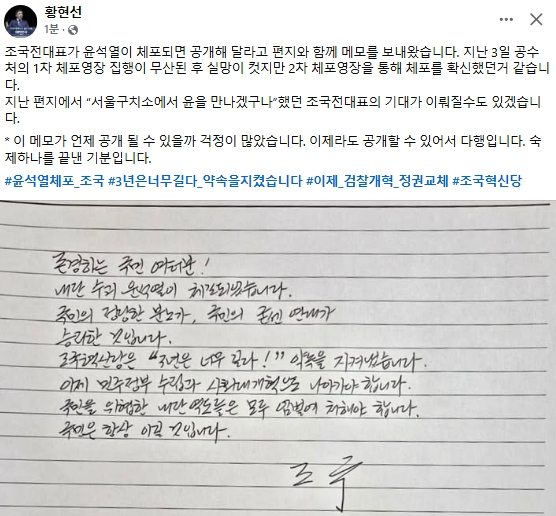 황현선
1분
조국전대표가 윤석열이 체포되면 공개해 달라고 편지와 함께 메모를 보내왔습니다. 지난 3일 공수
처의 1차 체포영장 집행이 무산된 후 실망이 컷지만 2차 체포영장을 통해 체포를 확신했던거 같습니
다.
지난 편지에서 “서울구치소에서 윤을 만나겠구나”했던 조국전대표의 기대가 이뤄질수도 있겠습니
다.
* 이 메모가 언제 공개 될 수 있을까 걱정이 많았습니다. 이제라도 공개할 수 있어서 다행입니다. 숙
제하나를 끝낸 기분입니다.
#윤석열체포_조국 #3년은너무길다_약속을지켰습니다 #이제_검찰개혁_정권교체 #조국혁신당
존경하는 국민 여러분!
내란 수괴 윤석열이 체포되었습니다.
국민의 정당한 분노가, 국민의 굳센 연대가
승리한 것입니다.
조국혁신당은 “3년은 너무 길다!” 약속을 지켜냈습니다.
이제 민주정부 수립과 사회대개혁으로 나아가야 합니다.
국민을 위협한 내란 역도들은 모두 엄벌에 처해야 합니다.
국민은 항상 이길 것입니다.
조국